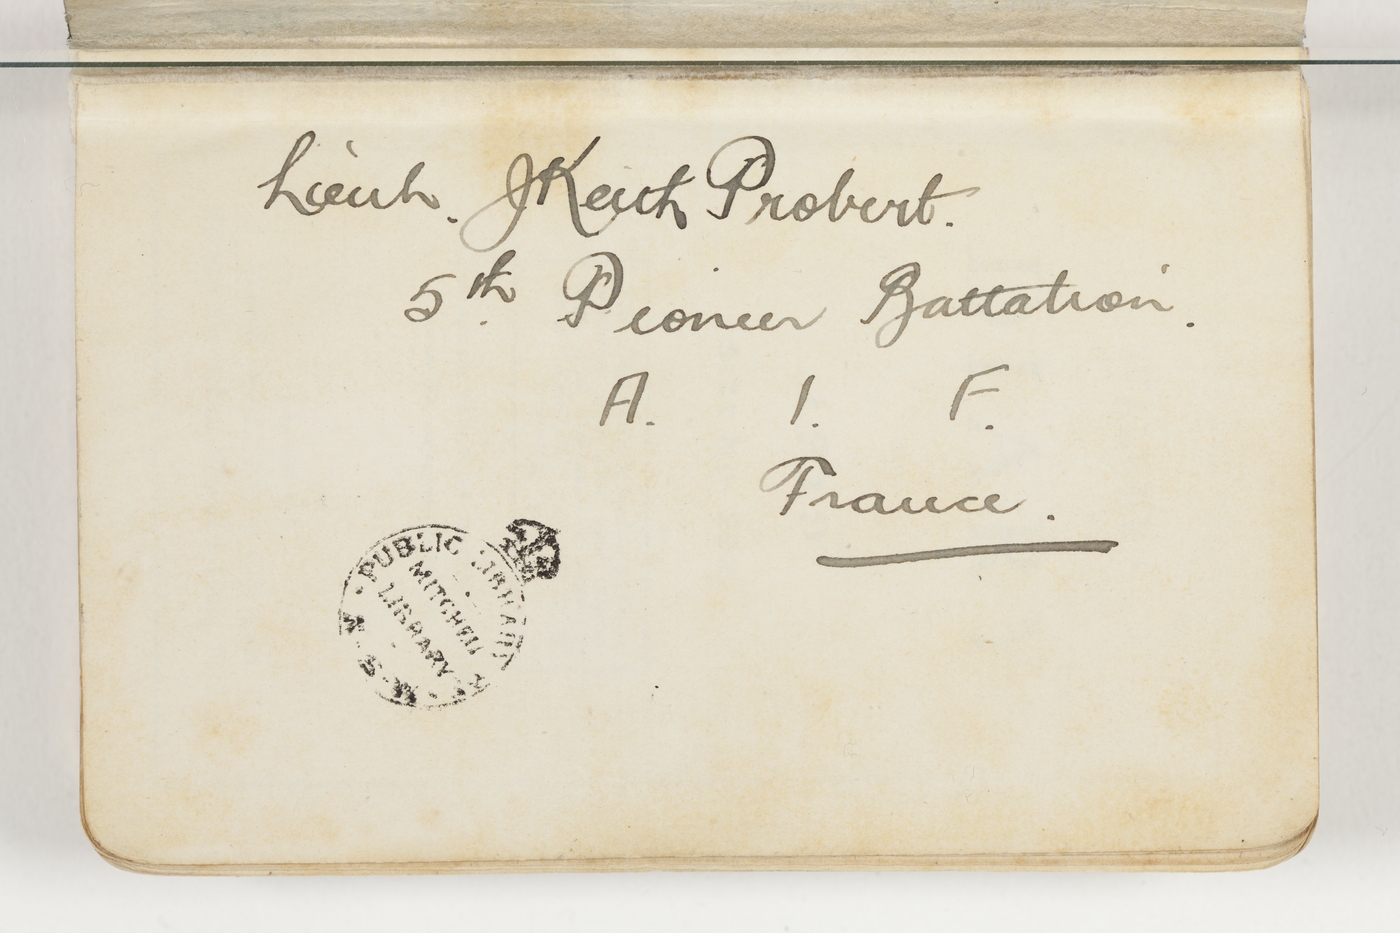 Lieut. J Keith Probert.
5th. Pioneer Battalion.
A. I. F.
France.
PUBLIC LIBRARY · N · S · W ·
MITCHELL
LIBRARY